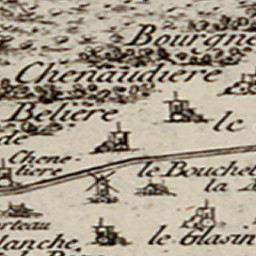 Bourgne
Chenaudiere
Beliere
le
de
Chene-
liere
le Bouchet
la
teau
lanche,
le Glasin